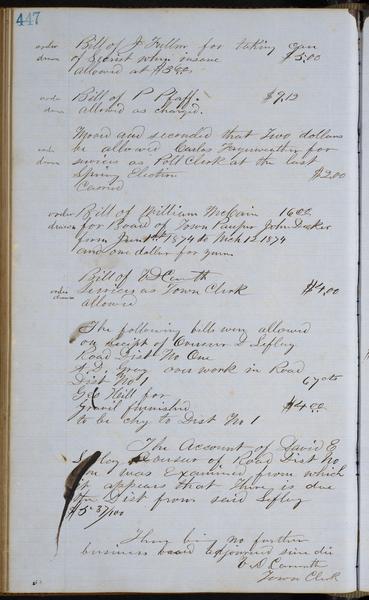 447
order Bill of J Fuller for taking care
drawn of Secrist while insane $5.00
allowed at $3.00
order Bill of P Pfaff. $9.13
drawn allowed as charged.
Moved and seconded that Two dollars
order be allowed Carlos Fayerweather for
drawn services as Poll Clerk at the last
Spring Election $2.00
Carried
order Bill of William McCain 16.00
drawn for Board of Town Pauper John Decker
from Jany 1st 1874 to Mch 12 1874
and one dollar for
Bill of W D Carruth
order Services as Town Clerk $4.00
drawn allowed
The following bills were allowed
on receipt of Overseer D. Lefley
Road Dist No One
A. D. Gray over work in Road
Dist No 1 67 cts
Geo Heill for
Gravil furnished $4.00
to be chg to Dist No 1
The Account of David E
Lefley Overseer of Road Dist No
One was Examined from which
it appears that there is due
the Dist from said Lefley
$5 37/100
There being no further
business board adjourned sine die
W D Carruth
Town Clerk